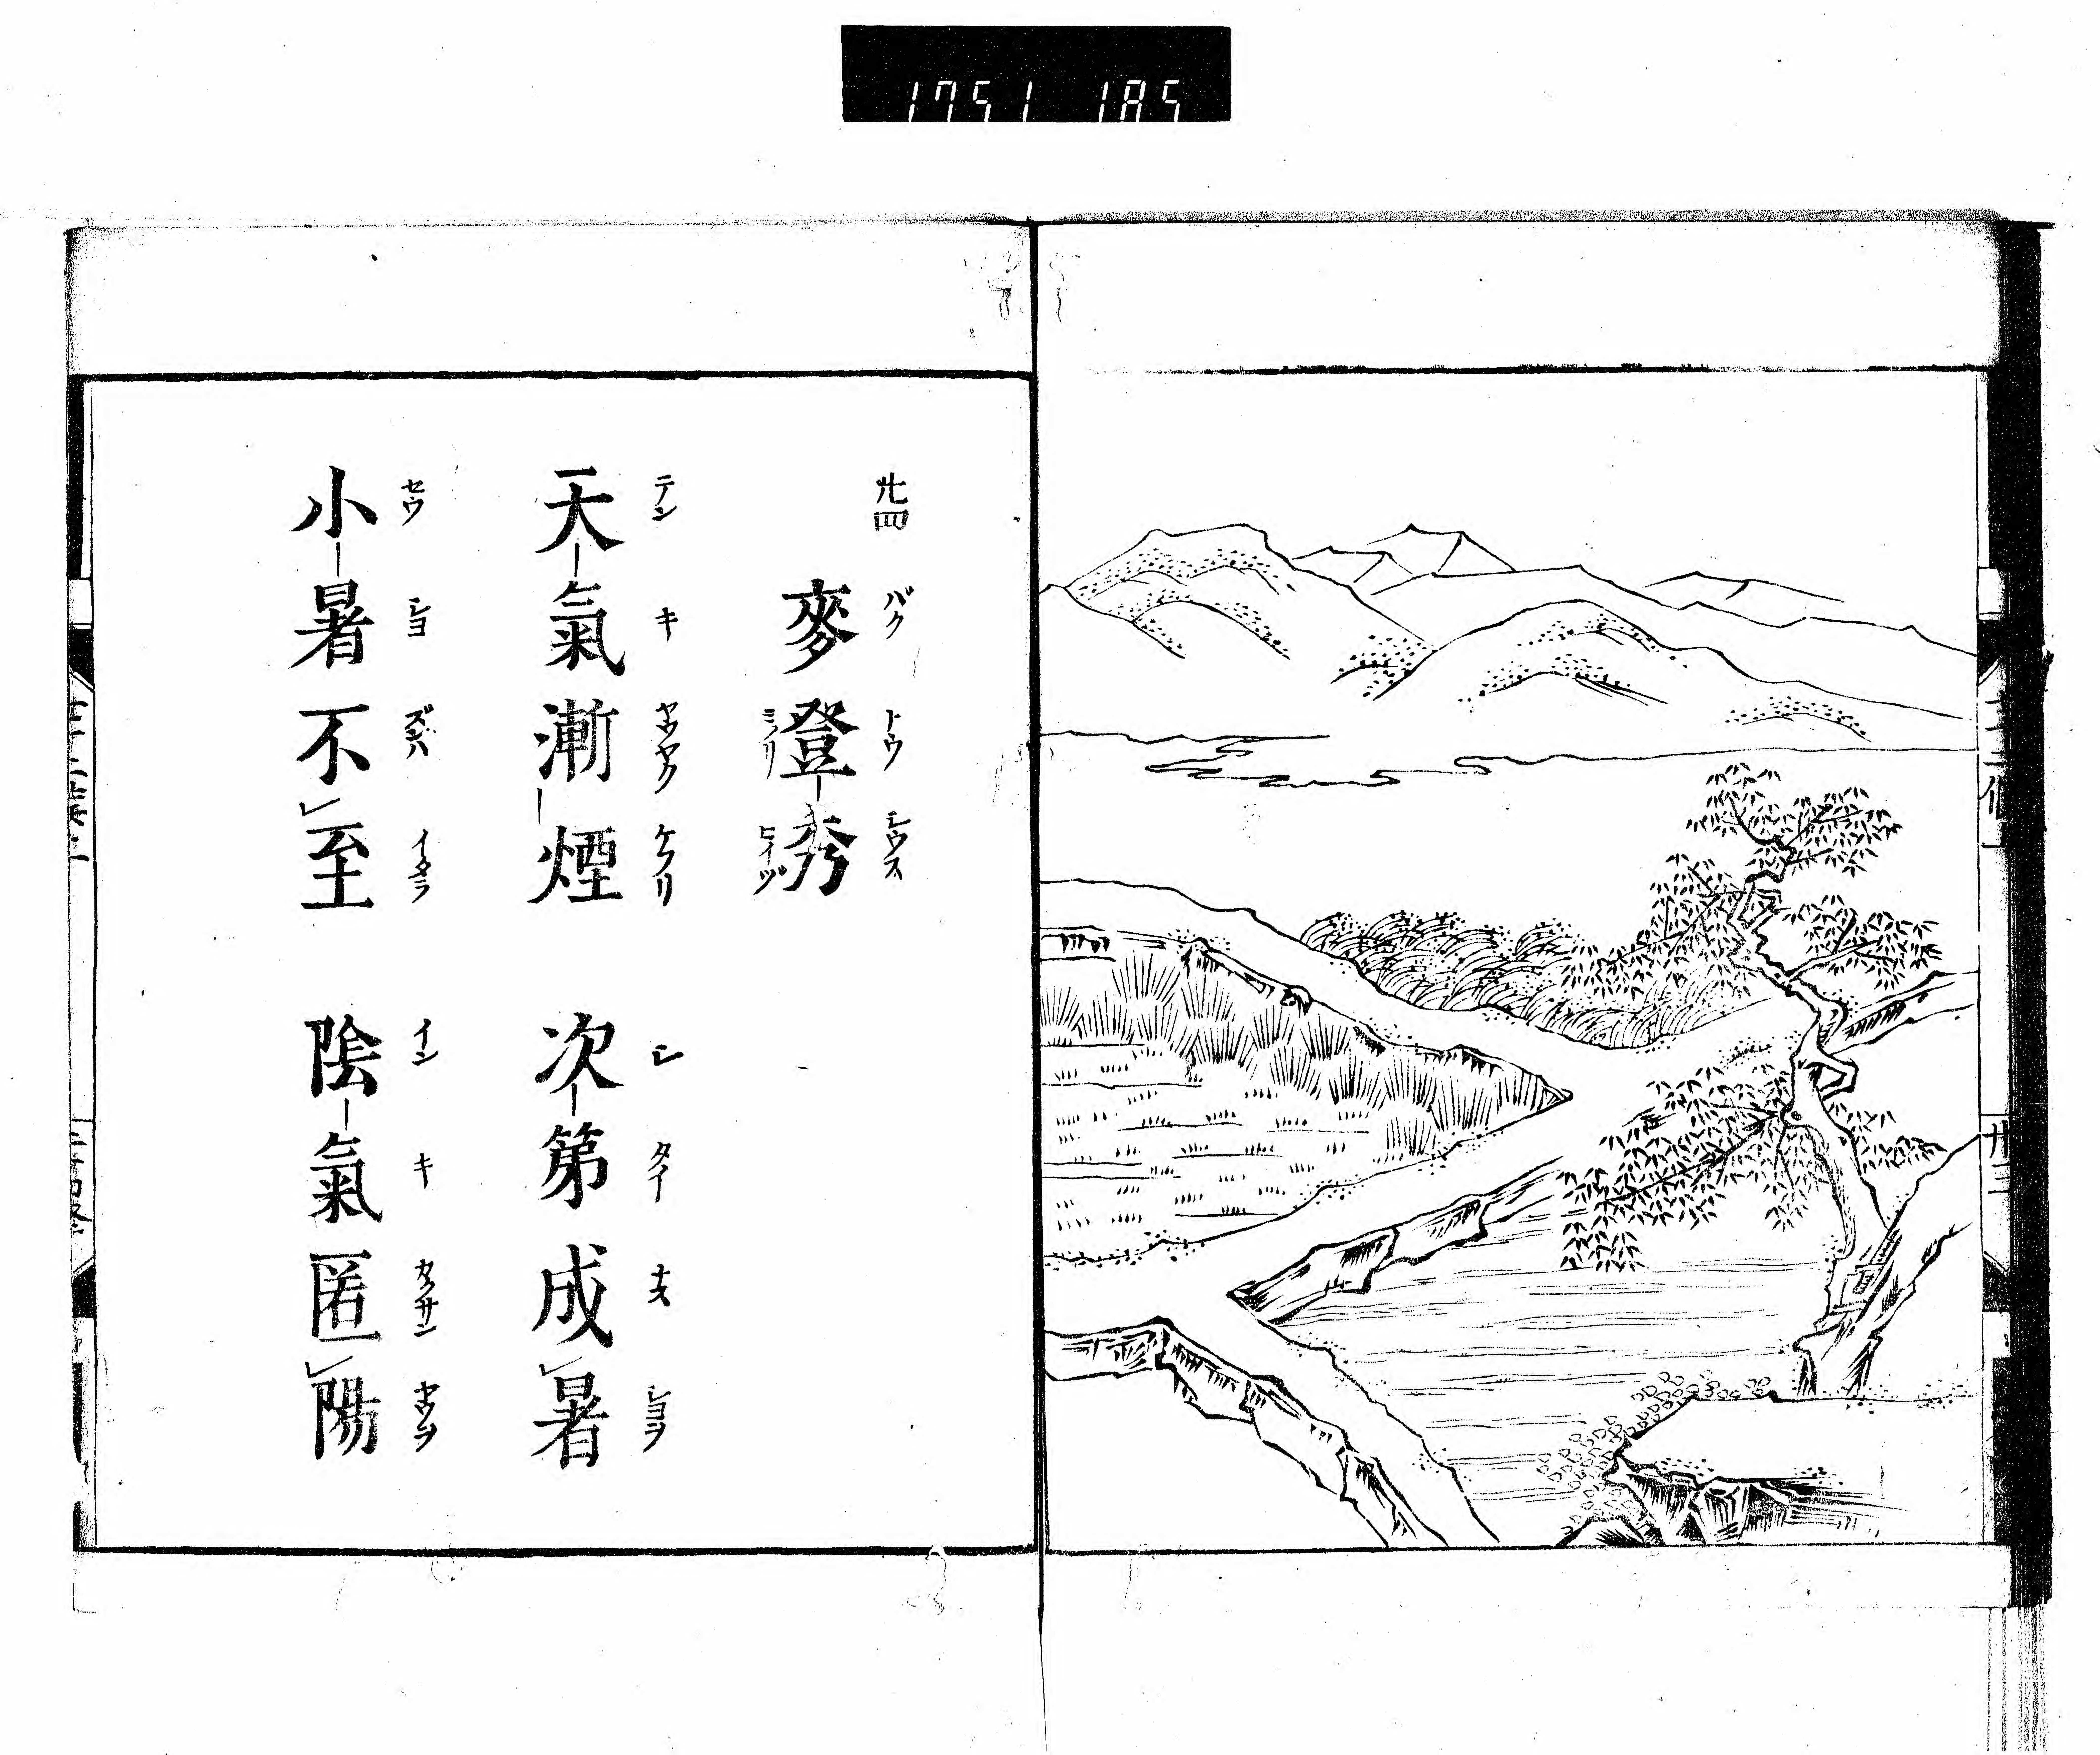 1751 185
廿四
麥登秀
バク トウ シウス
ミノリ ヒイヅ
天氣漸煙 次第成暑
テン キ ヤウヤク ケフリ シ タイ ナス シヨヲ
小暑不至 陰氣匿陽
セウ シヨ イタラ イン キ カクサン ヤウヲ